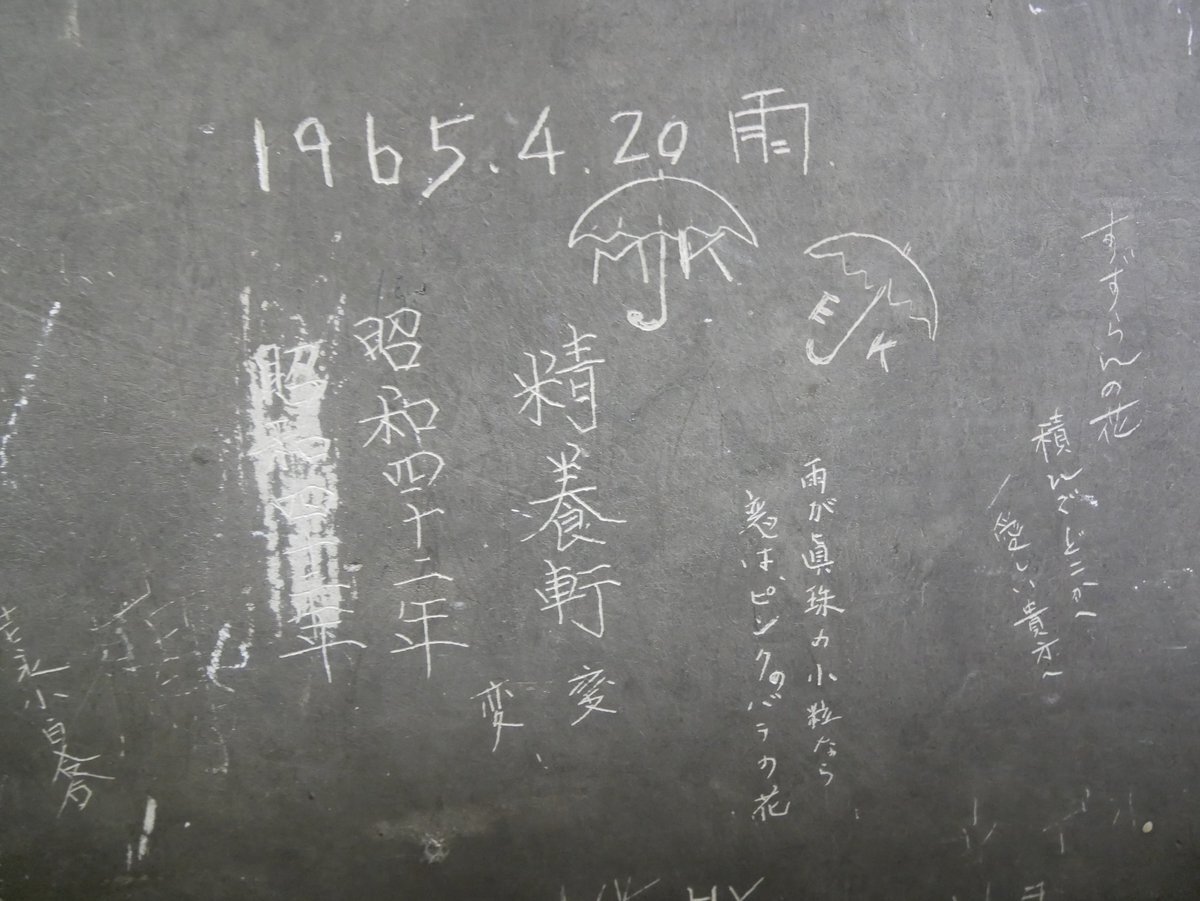 1965.4.20 雨
M K
E K
すゞらんの花
積んでどこかへ
愛しい貴方へ
雨が眞珠の小粒なら
恋は、ピンクのバラの花
精養軒
変
変
昭和四十二年
昭和四十二年